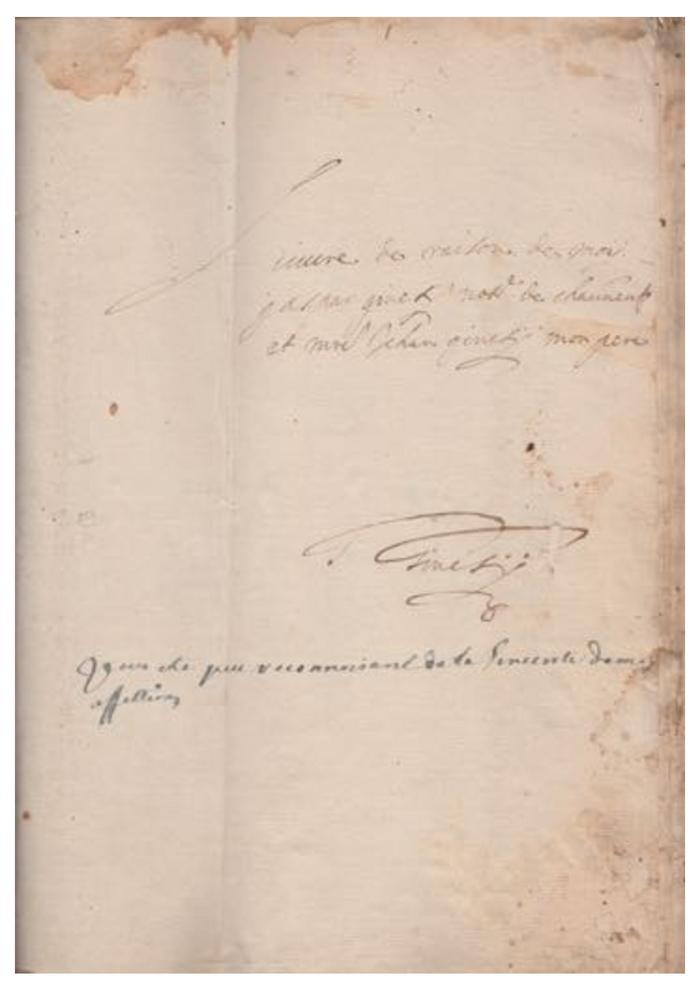 Livvre de raison de moy
jaspar ginest notre de
et mre Jehan ginesty mon pere
Ginesty
peu reconnoisant de la Sincerite de mes
affections